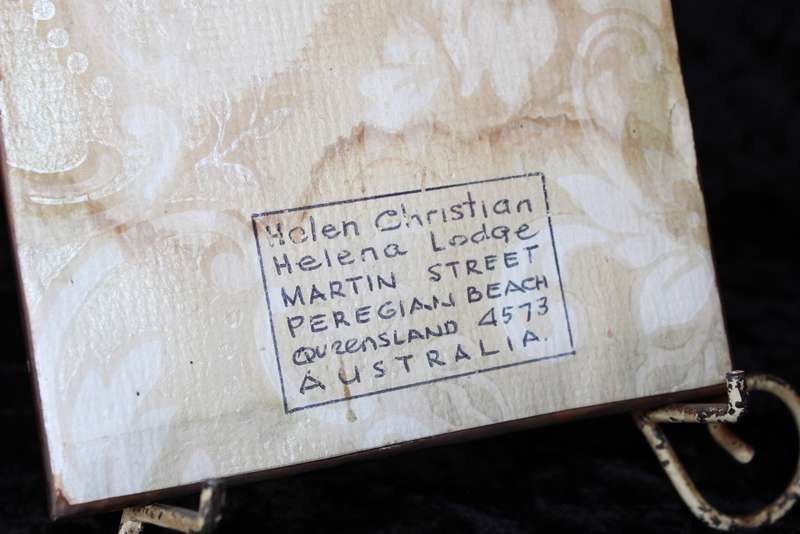 Helen Christian
Helena Lodge
MARTIN STREET
PEREGIAN BEACH
QUEenSLAND 4573
AUSTRALIA.